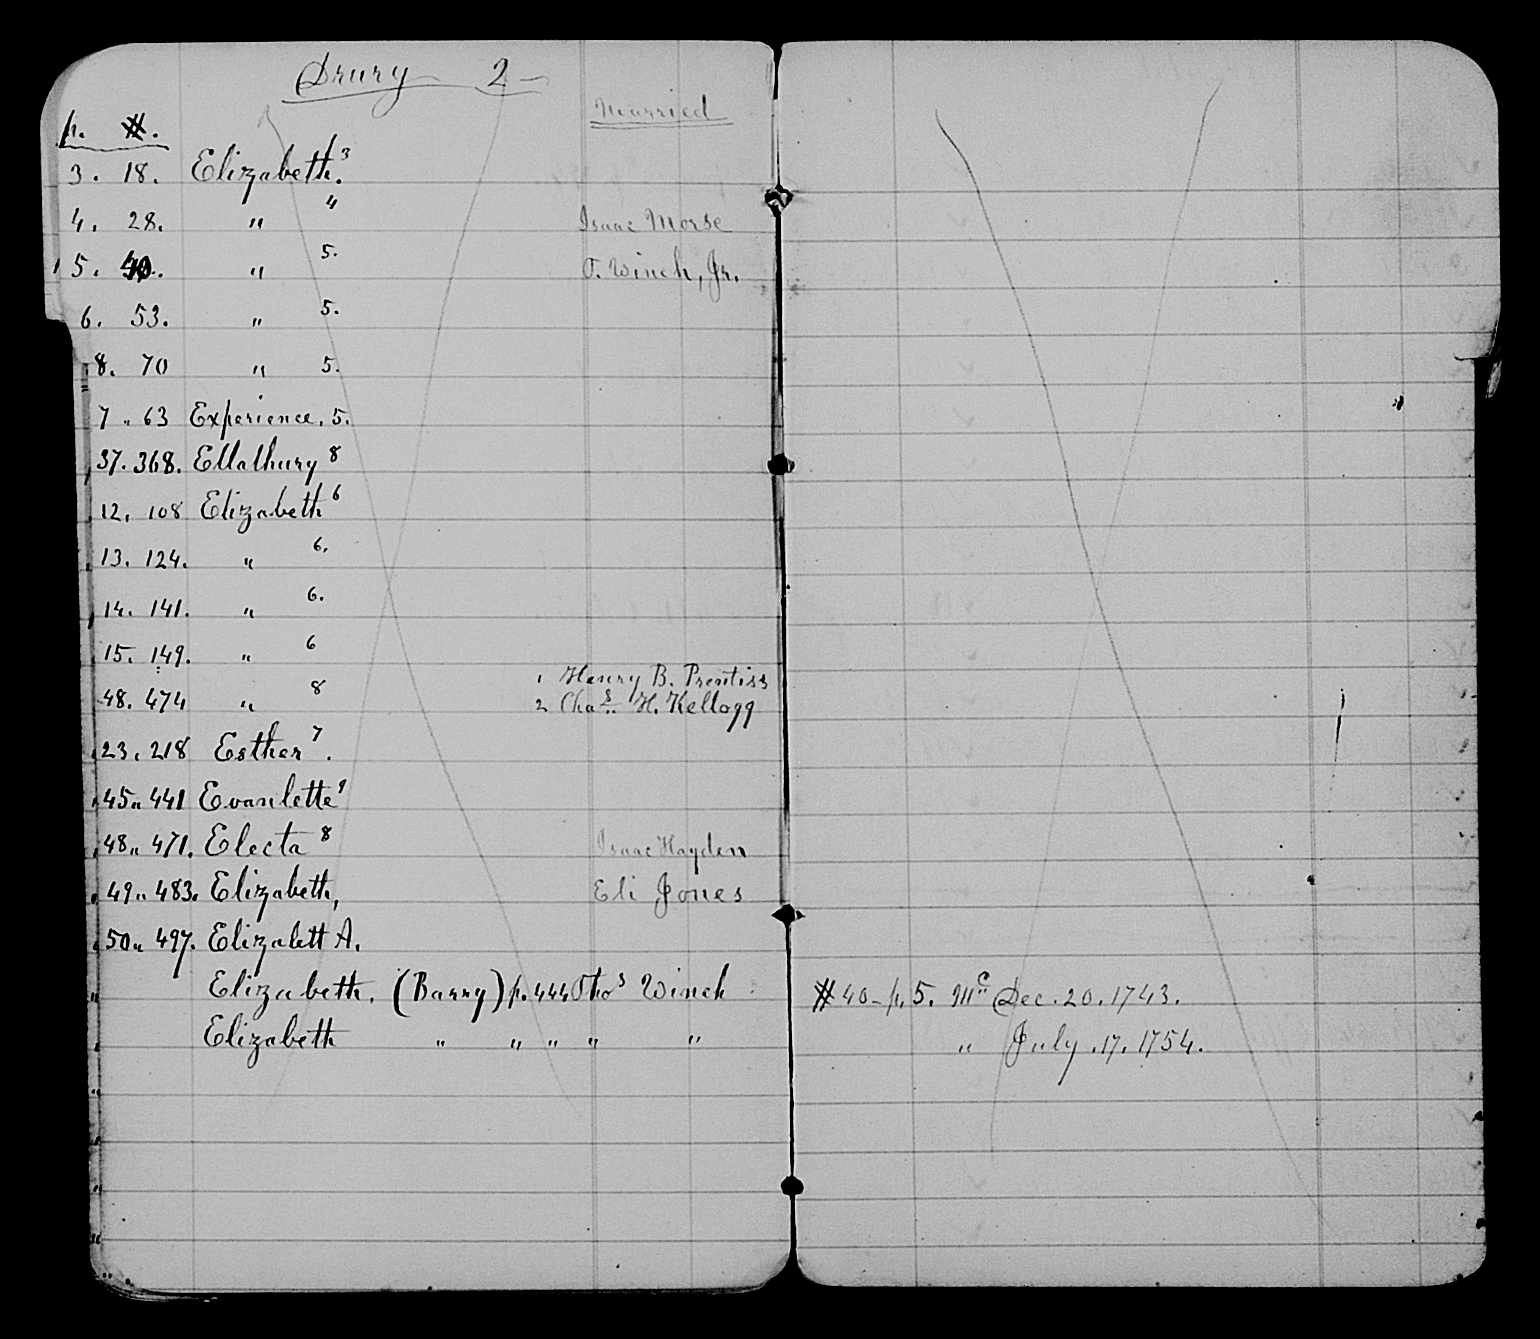 Drury 2
Married
p. #.
3. 18. Elizabeth.³
4. 28. " ⁴ Isaac Morse
5. 40. " 5. T. Winch, Jr.
6. 53. " 5.
8. 70 " 5.
7 " 63 Experience. 5.
37. 368. Ellathury ⁸
12. 108 Elizabeth ⁶
13. 124. " 6.
14. 141. " 6.
15. 149. " 6
48. 474 " 8 1 Henry B. Prentiss
2 Chaˢ. H. Kellogg
23. 218 Esther ⁷.
45 " 441 Evanlette ⁹
48 " 471. Electa ⁸ Isaac Hayden
49 " 483. Elizabeth, Eli Jones
50 " 497. Elizabett A.
Elizabeth. (Barry) p. 444 Thoˢ Winch # 40 - p. 5. Mᶜ Dec. 20. 1743.
Elizabeth " " " " " " July. 17. 1754.